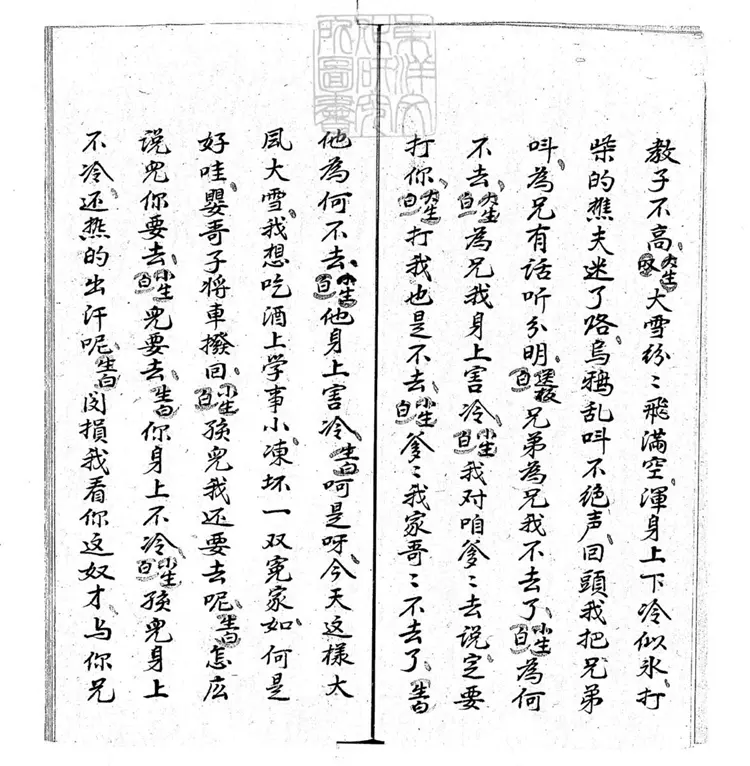 教子不高、大生唱大雪紛〻飛滿空、渾身上下冷似氷、打
柴的樵夫迷了路、烏鴉乱叫不绝声、回頭我把兄弟
叫、為兄有话听分明、送板白兄弟為兄我不去了、小生白為何
不去、大生白為兄我身上害冷、小生白我对咱爹〻去说、定要
打你、大生白打我也是不去、小生白爹〻我家哥〻不去了、生白
他為何不去、小生白他身上害冷、生白呵是呀、今天这樣大
風大雪、我想吃酒上学事小、凍坏一双寃家、如何是
好哇、嬰哥子将車撥回、小生白孩兒我还要去呢、生白怎庅
说兒你要去、小生白兒要去、生白你身上不冷、小生白孩兒身上
不冷还热的出汗呢、生白闵損我看你这奴才、与你兄
東洋文化研究所圖書